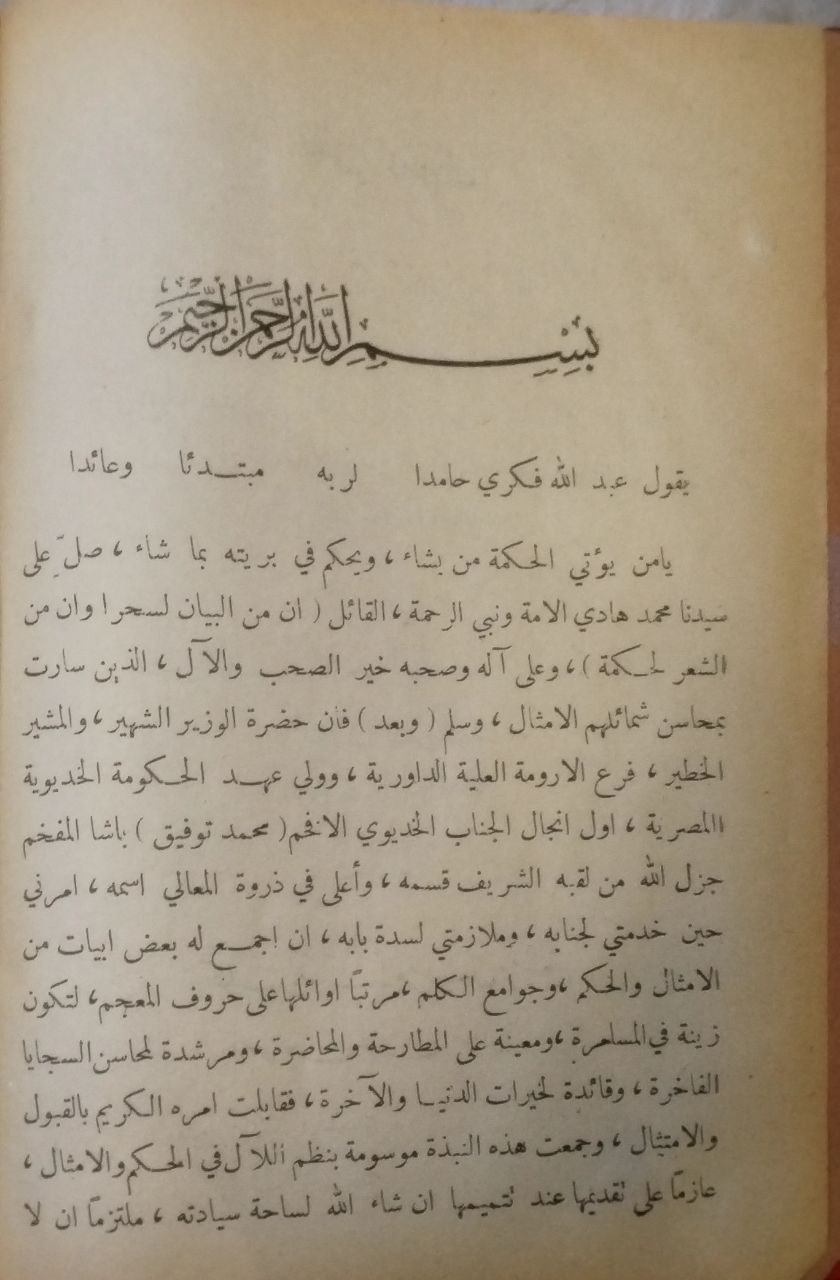 بِسْمِ اللّٰهِ الرَّحْمٰنِ الرَّحِيمِ
يقول عبد الله فكري حامدا لربه مبتدئا وعائدا
يامن يؤتي الحكمة من يشاء ، ويحكم في بريته بما شاء ، صلِّ على
سيدنا محمد هادي الامة ونبي الرحمة ، القائل ( ان من البيان لسحرا وان من
الشعر لحكمة ) ، وعلى آله وصحبه خير الصحب والآل ، الذين سارت
بمحاسن شمائلهم الامثال ، وسلم ( وبعد ) فان حضرة الوزير الشهير ، والمشير
الخطير ، فرع الارومة العلية الداورية ، وولي عهد الحكومة الخديوية
المصرية ، اول انجال الجناب الخديوي الافخم ( محمد توفيق ) باشا المفخم
جزل الله من لقبه الشريف قسمه ، وأعلى في ذروة المعالي اسمه ، امرني
حين خدمتي لجنابه ، وملازمتي لسدة بابه ، ان اجمع له بعض ابيات من
الامثال والحكم ، وجوامع الكلم ، مرتبًا اوائلها على حروف المعجم ، لتكون
زينة في المسامرة ، ومعينة على المطارحة والمحاضرة ، ومرشدة لمحاسن السجايا
الفاخرة ، وقائدة لخيرات الدنيا والآخرة ، فقابلت امره الكريم بالقبول
والامتثال ، وجمعت هذه النبذة موسومة بنظم اللآل في الحكم والامثال ،
عازمًا على تقديمها عند تتميمها ان شاء الله لساحة سيادته ، ملتزمًا ان لا